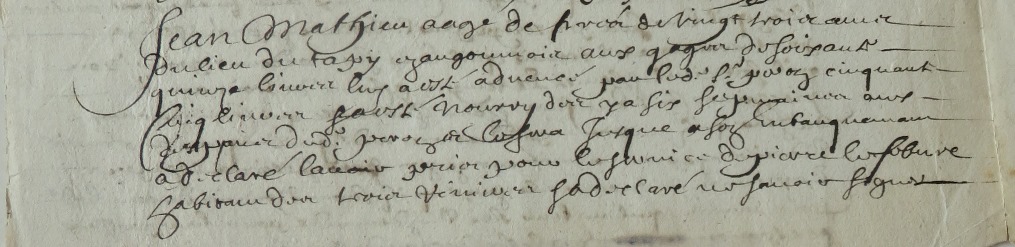 Jean Mathieu aagé de pres de vingt trois annes
du lieu du tapy en angoumois aux gages de soixante
quinze livres luy a esté advencé par led. sr. perez cinquante
cinq livres sa esté nourry des ja six sepmaines aux
despans dud. perez et le sera jusque a son enbarquemant
a declaré lavoir pris pour le service de pierre lefebvre
habitant des trois rivieres sa declaré ne savoir signer